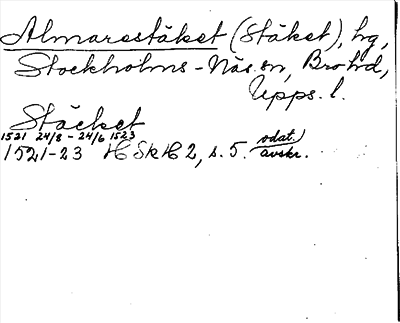 Almarestäket (Stäket), hg,
Stockholms-Näs sn, Bro hd,
Upps. l.
Stäcket
1521 24/8 - 24/6 1523
1521-23 HSkH 2, s. 5. odat. avskr.